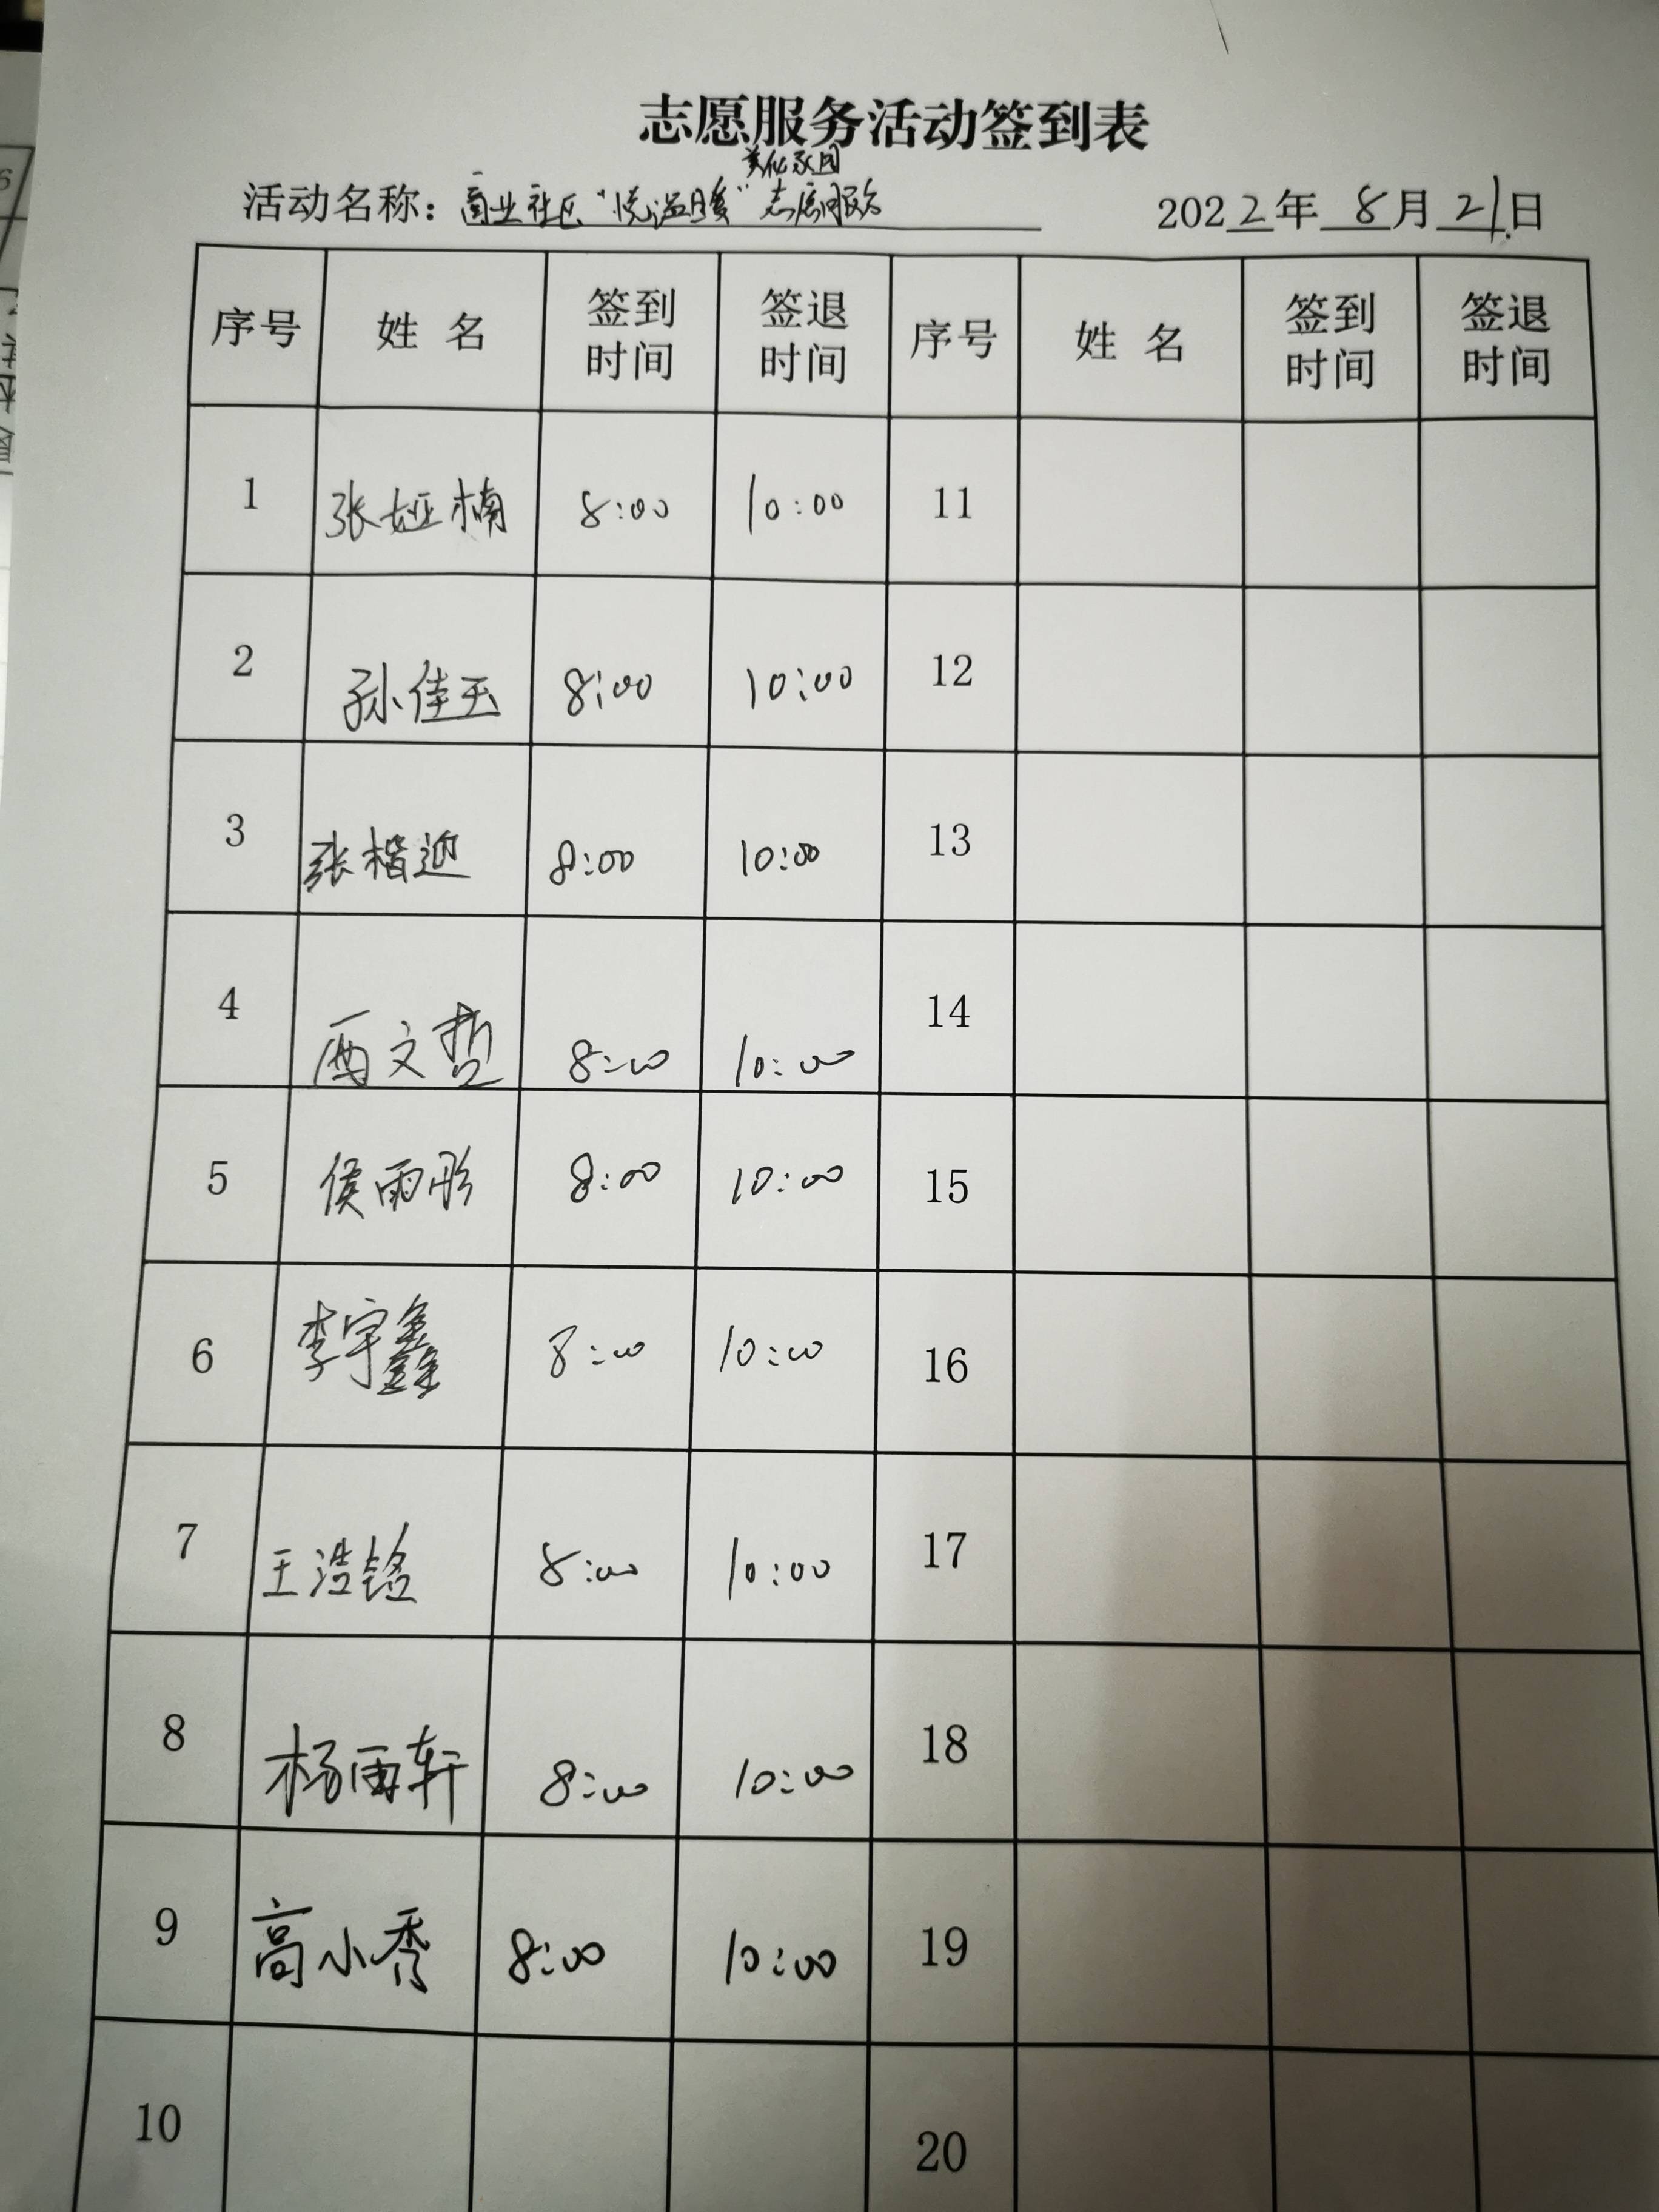 志愿服务活动签到表
美化家园
活动名称：商业社区“悦溢暖”志愿服务 2022年 8月 21日
序号 姓名 签到时间 签退时间 序号 姓名 签到时间 签退时间
1 张娅楠 8:00 10:00 11
2 孙佳玉 8:00 10:00 12
3 张楷迎 8:00 10:00 13
4 文哲 8:00 10:00 14
5 侯雨彤 8:00 10:00 15
6 李宇鑫 8:00 10:00 16
7 王浩铭 8:00 10:00 17
8 杨雨轩 8:00 10:00 18
9 高小秀 8:00 10:00 19
10 20